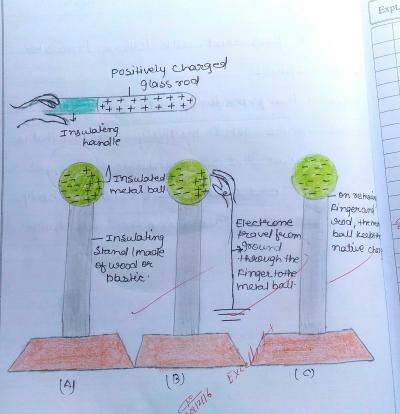 Expt.
positively charged
glass rod
Insulating
handle
Insulated
metal ball
Insulating
Stand (made
of wood or
plastic.
Electrons
travel from
ground
through the
Finger to the
metal ball.
on
Finger and
rod, the
ball keeps
native
(A)
(B)
(C)
Excellent